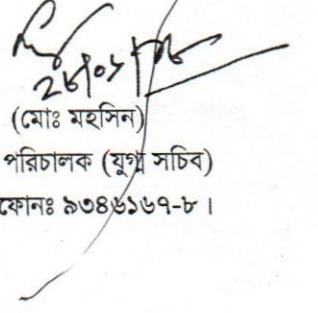 (মোঃ মহসিন)
পরিচালক (যুগ্ম সচিব)
ফোনঃ ৯৩৪৬১৬৭-৮।